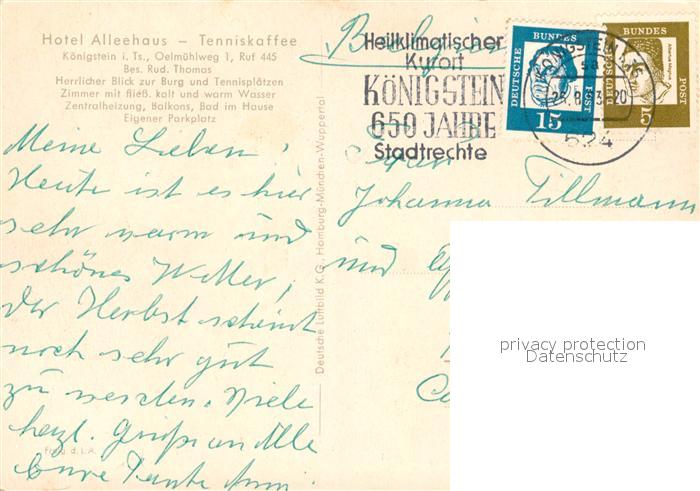 Hotel Alleehaus – Tenniskaffee
Königstein i. Ts., Oelmühlweg 1, Ruf 445
Bes. Rud. Thomas
Herrlicher Blick zur Burg und Tennisplätzen
Zimmer mit fließ. kalt und warm Wasser
Zentralheizung, Balkons, Bad im Hause
Eigener Parkplatz
Meine Lieben,
Heute ist es hier
sehr warm und
schönes Wetter,
der Herbst scheint
noch sehr gut
zu werden. Viele
herzl. Grüße an Alle
Eure Tante Ann.
Frög. d. L.A.
Deutsche Luftbild K.G., Hamburg-München-Wuppertal
Heilklimatischer
Kurort
KÖNIGSTEIN
650 JAHRE
Stadtrechte
DEUTSCHE BUNDES POST
15
DEUTSCHE BUNDES POST
5
KÖNIGSTEIN
624
Johanna Tillmann
und
privacy protection
Datenschutz